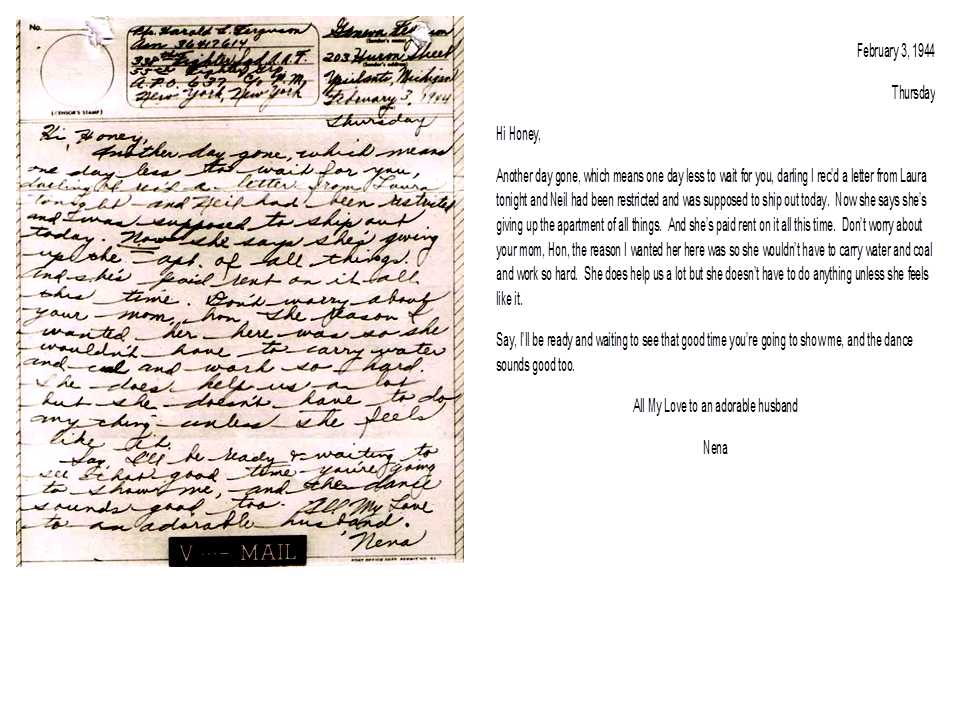 No.
(CENSOR'S STAMP)
Pfc. Harold L. Ferguson
Asn 36417614
338th Fighter Sqd. A.A.F.
55th Fighter Grp.
A.P.O. 637 C/o P.M.
New York, New York
Geneva Ferguson
(Sender's name)
203 Huron Street
(Sender's address)
Ypsilanti, Michigan
February 3, 1944
Thursday
Hi, Honey,
Another day gone, which means
one day less to wait for you,
darling I rec'd a letter from Laura
tonight and Neil had been restricted
and was supposed to ship out
today. Now she says she's giving
up the apt. of all things.
And she's paid rent on it all
this time. Don't worry about
your mom, hon the reason I
wanted her here was so she
wouldn't have to carry water
and coal and work so hard.
She does help us a lot
but she doesn't have to do
anything unless she feels
like it.
Say, I'll be ready & waiting to
see that good time you're going
to show me, and the dance
sounds good too. All My Love
to an adorable husband.
Nena
V --- MAIL
POST OFFICE DEPT. PERMIT NO.
February 3, 1944
Thursday
Hi Honey,
Another day gone, which means one day less to wait for you, darling I rec'd a letter from Laura
tonight and Neil had been restricted and was supposed to ship out today. Now she says she's
giving up the apartment of all things. And she's paid rent on it all this time. Don't worry about
your mom, Hon, the reason I wanted her here was so she wouldn't have to carry water and coal
and work so hard. She does help us a lot but she doesn't have to do anything unless she feels
like it.
Say, I'll be ready and waiting to see that good time you're going to show me, and the dance
sounds good too.
All My Love to an adorable husband
Nena